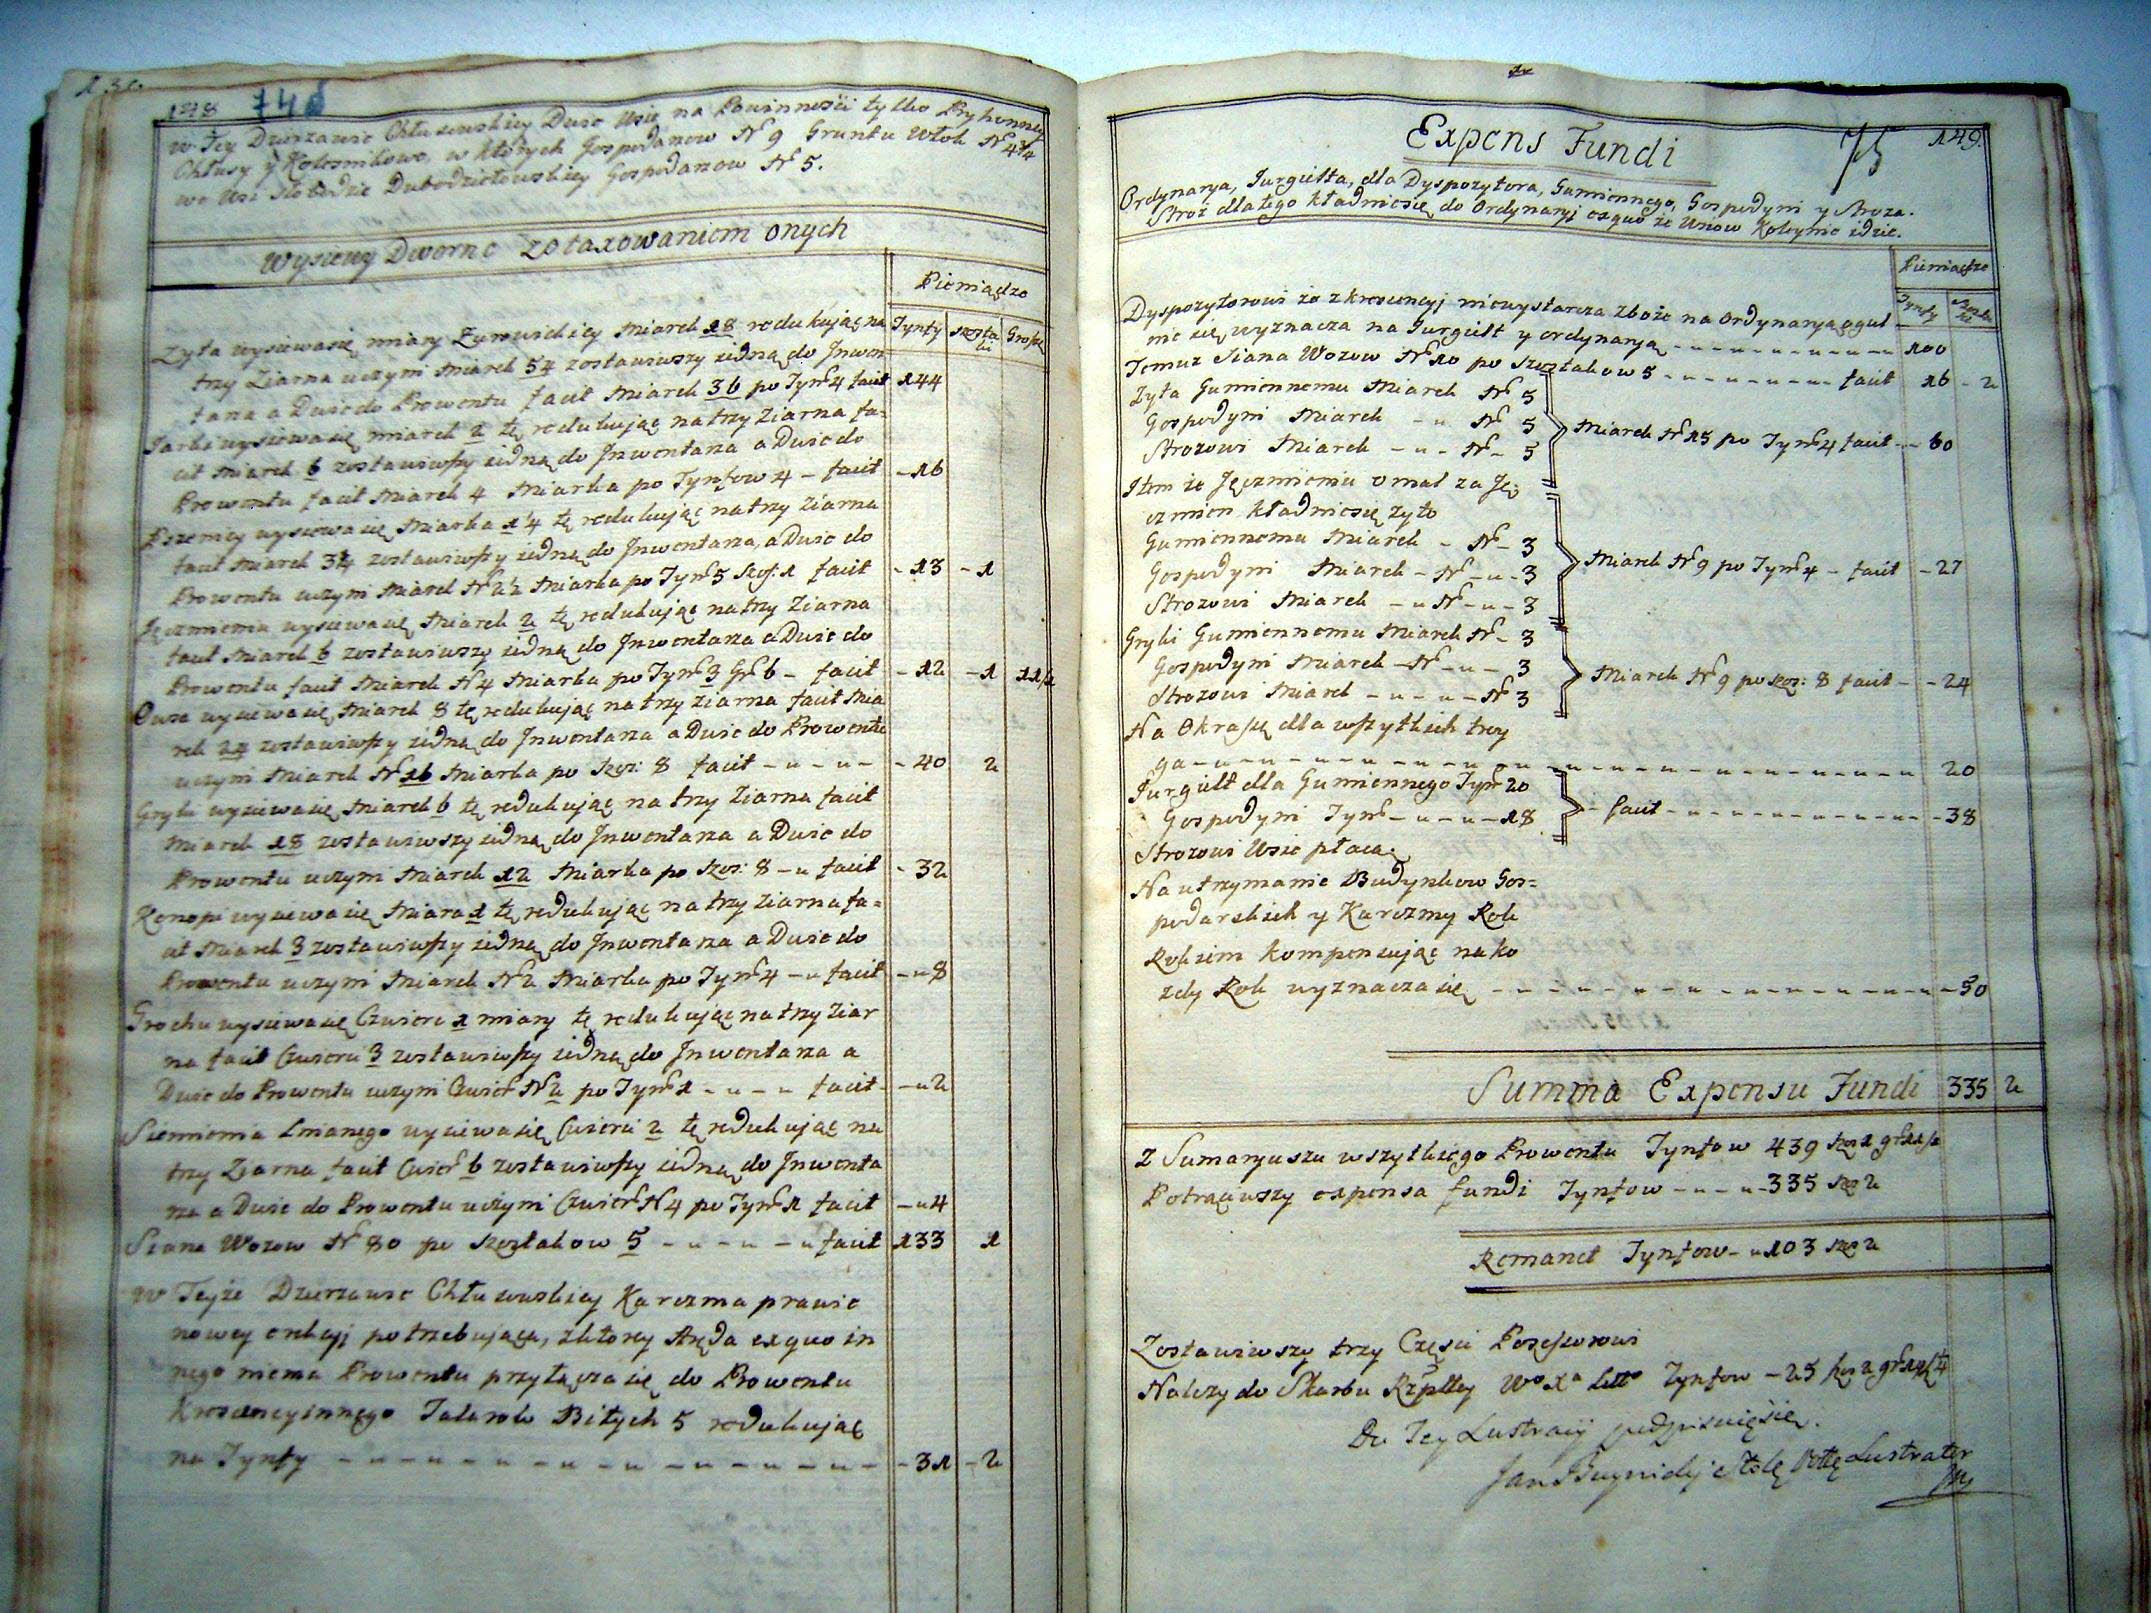 148 748
w Tey Dzierzawie Chłusewskiey Dwie Wsie na Powinnosci tylko
Chłusy y Kolesnikowo, w ktorych Gospodarzow Nr 9 Gruntu Włok Nr 4
we Wsi Słobodzie Dubodziełowskiey Gospodarzow Nr 5.
Wysiewy Dworne zotaxowaniem onych
Pieniądze
Tynfy Szosta ki Grosze
Zyta wysiewa się miary Miarek 18 redukuiąc na
trzy Ziarna uczyni Miarek 54 zostawiwszy iedną do Jnwen
tarza a Dwie do Prowentu facit Miarek 36 po Tynf: 4 facit 144
Jarki wysiewa się miarek 2 tę redukuiąc na trzy Ziarna fa=
cit Miarek 6 zostawiwszy iedną do Jnwentarza a Dwie do
Prowentu facit Miarek 4 Miarka po Tynfow 4 - facit - 16
Pszenicy wysiewa się Miarka 1 1/4 tę redukuiąc na trzy Ziarna
facit Miarek 3 3/4 zostawiwszy iedną do Jnwentarza, a Dwie do
Prowentu uczyni Miarek Nr 2 1/2 Miarka po Tynf: 5 Szos: 1 facit - 13 - 1
Jęczmieniu wysiewa się Miarek 2 tę redukuiąc na trzy Ziarna
facit Miarek 6 zostawiwszy iedną do Jnwentarza a Dwie do
Prowentu facit Miarek Nr 4 Miarka po Tynf: 3 Gr: 6 - facit - 12 - 1 11/2
Owsa wysiewa się Miarek 8 tę redukuiąc na trzy ziarna facit Mia
rek 24 zostawiwszy iedną do Jnwentarza a Dwie do Prowentu
uczyni Miarek Nr 16 Miarka po Szos: 8 facit - 40 2
Gryki wysiewa się Miarek 6 tę redukuiąc na trzy Ziarna facit
Miarek 18 zostawiwszy iedną do Jnwentarza a Dwie do
Prowentu uczyni Miarek 12 Miarka po Szos: 8 - facit - 32
Konopi wysiewa się Miara 1 tę redukuiąc na trzy Ziarna fa=
cit Miarek 3 zostawiwszy iedną do Jnwentarza a Dwie do
Prowentu uczyni Miarek Nr 2 Miarka po Tynf: 4 - facit - 8
Grochu wysiewa się Czwierc 1 miary tę redukuiąc na trzy Ziar
na facit Czwierci 3 zostawiwszy iedną do Jnwentarza a
Dwie do Prowentu uczyni Czwier: Nr 2 po Tynf: 1 - facit - 2
Siemienia Lnianego wysiewa się Cwierci 2 tę redukuiąc na
trzy Ziarna facit Cwier: 6 zostawiwszy iedną do Jnwenta
rza a Dwie do Prowentu uczyni Czwier: Nr 4 po Tynf: 1 facit - 4
Siana Wozow Nr 80 po Szostakow 5 - facit 133 1
w Teyże Dzierzawie Chłusewskiey Karczma prawie
nowey erekcyi potrzebuiąca, z ktorey Aręda ex quo in
nego niema Prowentu przyłącza się do Prowentu
Krescencyinnego Talarow Bitych 5 redukuiąc
na Tynfy - 31 - 2
149.
75
Expens Fundi
Ordynarya, Jurgiełta, dla Dyspozytora, Gumiennego, Gospodyni y Stroza.
Stroż dlatego kładnie się do Ordynaryi exquo że Unow idzie.
Pieniądze
Tynfy Szosta ki
Dyspozytorowi że z krescencyi niewystarcza zboże na Ordynaryą ogul
nie się wyznacza na Jurgielt y ordynaryą - 100
Temuz Siana Wozow Nr 10 po Szostakow 5 - facit 16 - 2
Zyta Gumiennemu Miarek Nr 5
Gospodyni Miarek - Nr 5
Strozowi Miarek - Nr - 5
Miarek Nr 15 po Tynf: 4 facit - 60
Item że Jęczmieniu omal za Ję=
czmien kładnie się żyto
Gumiennemu Miarek - Nr - 3
Gospodyni Miarek - Nr - 3
Strozowi Miarek - Nr - 3
Miarek Nr 9 po Tynf: 4 - facit - 27
Gryki Gumiennemu Miarek Nr - 3
Gospodyni Miarek - Nr - 3
Strozowi Miarek - Nr 3
Miarek Nr 9 po szos: 8 facit - 24
Na Okrasę dla wszytkich troy
ga - 20
Jurgielt dla Gumiennego Tynf: 20
Gospodyni Tynf: - 18
- facit - 38
Strozowi Wsie płacą.
Na utrzymanie Budynkow Gos=
podarskich y Karczmy Rok
Rokiem kompensuiąc na ko
zdy Rok wyznacza się - 50
Summa Expensu Fundi 335 2
Z Sumaryuszu wszytkiego Prowentu Tynfow 439 szos 1 gr: 11/2
Potrąciwszy expensa fundi Tynfow - 335 szos 2
Remanet Tynfow - 103 szos 2
Zostawiwszy trzy Części Possessorowi
Należy do Skarbu Rzpltey Wo Xa Litto Tynfow - 25 szos 2 gr:
Do Tey Lustracyi podpisuię się.
Jan Lustrator